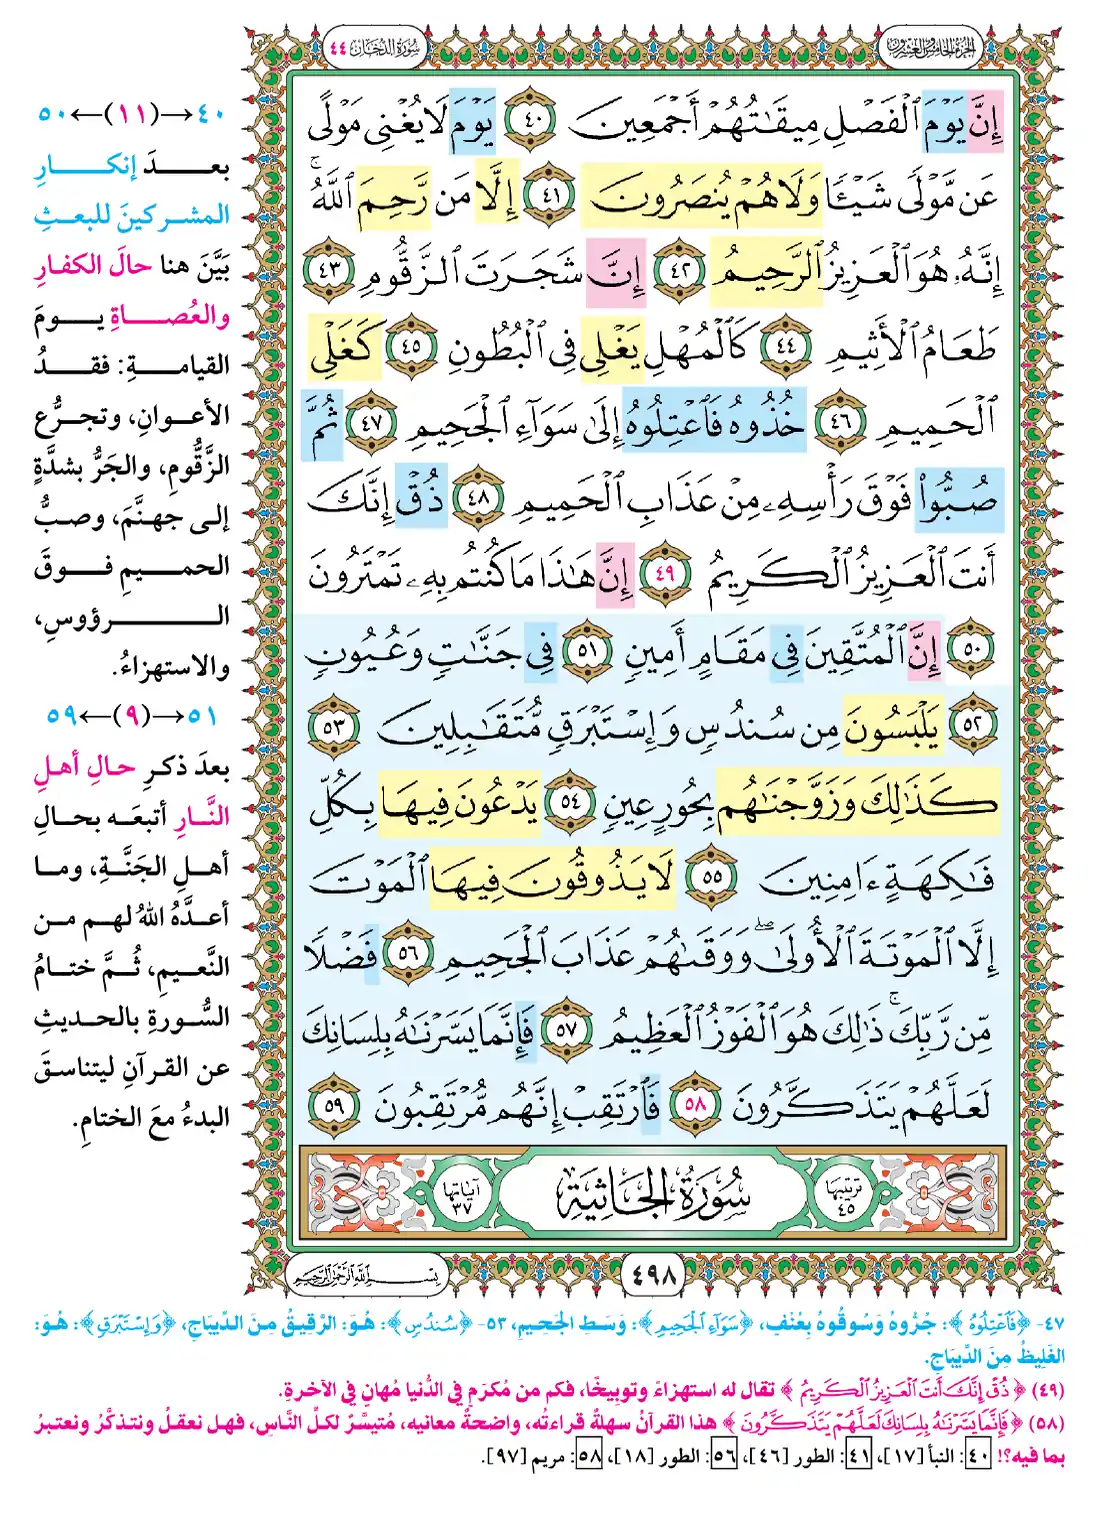 الجزء الخامس والعشرون
سورة الدخان ٤٤
إِنَّ يَوْمَ ٱلْفَصْلِ مِيقَٰتُهُمْ أَجْمَعِينَ ٤٠ يَوْمَ لَا يُغْنِى مَوْلًى
عَن مَّوْلًى شَيْـًٔا وَلَا هُمْ يُنصَرُونَ ٤١ إِلَّا مَن رَّحِمَ ٱللَّهُ ۚ
إِنَّهُۥ هُوَ ٱلْعَزِيزُ ٱلرَّحِيمُ ٤٢ إِنَّ شَجَرَتَ ٱلزَّقُّومِ ٤٣
طَعَامُ ٱلْأَثِيمِ ٤٤ كَٱلْمُهْلِ يَغْلِى فِى ٱلْبُطُونِ ٤٥ كَغَلْىِ
ٱلْحَمِيمِ ٤٦ خُذُوهُ فَٱعْتِلُوهُ إِلَىٰ سَوَآءِ ٱلْجَحِيمِ ٤٧ ثُمَّ
صُبُّوا۟ فَوْقَ رَأْسِهِۦ مِنْ عَذَابِ ٱلْحَمِيمِ ٤٨ ذُقْ إِنَّكَ
أَنتَ ٱلْعَزِيزُ ٱلْكَرِيمُ ٤٩ إِنَّ هَٰذَا مَا كُنتُم بِهِۦ تَمْتَرُونَ
٥٠ إِنَّ ٱلْمُتَّقِينَ فِى مَقَامٍ أَمِينٍ ٥١ فِى جَنَّٰتٍ وَعُيُونٍ
٥٢ يَلْبَسُونَ مِن سُندُسٍ وَإِسْتَبْرَقٍ مُّتَقَٰبِلِينَ ٥٣
كَذَٰلِكَ وَزَوَّجْنَٰهُم بِحُورٍ عِينٍ ٥٤ يَدْعُونَ فِيهَا بِكُلِّ
فَٰكِهَةٍ ءَامِنِينَ ٥٥ لَا يَذُوقُونَ فِيهَا ٱلْمَوْتَ
إِلَّا ٱلْمَوْتَةَ ٱلْأُولَىٰ ۖ وَوَقَىٰهُمْ عَذَابَ ٱلْجَحِيمِ ٥٦ فَضْلًا
مِّن رَّبِّكَ ۚ ذَٰلِكَ هُوَ ٱلْفَوْزُ ٱلْعَظِيمُ ٥٧ فَإِنَّمَا يَسَّرْنَٰهُ بِلِسَانِكَ
لَعَلَّهُمْ يَتَذَكَّرُونَ ٥٨ فَٱرْتَقِبْ إِنَّهُم مُّرْتَقِبُونَ ٥٩
ترتيبها ٤٥ سُورَةُ الجَاثِيَةِ آياتها ٣٧
٤٩٨
بسم الله الرحمن الرحيم
٤٠→(١١)←٥٠
بعدَ إنكارِ
المشركينَ للبعثِ
بَيَّنَ هنا حالَ الكفارِ
والعُصاةِ يومَ
القيامةِ: فقدُ
الأعوانِ، وتجرُّع
الزَّقُّومِ، والجَرُّ بشدَّةٍ
إلى جهنَّمَ، وصبُّ
الحميمِ فوقَ
الرؤوسِ،
والاستهزاءُ.
٥١→(٩)←٥٩
بعدَ ذكرِ حالِ أهلِ
النَّارِ أتبعَه بحالِ
أهلِ الجَنَّةِ، وما
أعدَّهُ اللهُ لهم من
النَّعيمِ، ثُمَّ ختامُ
السُّورةِ بالحديثِ
عن القرآنِ ليتناسقَ
البدءُ معَ الختامِ.
٤٧- ﴿فَٱعْتِلُوهُ﴾: جُرُّوهُ وَسُوقُوهُ بِعُنْفٍ، ﴿سَوَآءِ ٱلْجَحِيمِ﴾: وَسَطِ الجَحِيمِ، ٥٣- ﴿سُندُسٍ﴾: هُوَ: الرَّقِيقُ مِنَ الدِّيبَاجِ، ﴿وَإِسْتَبْرَقٍ﴾: هُوَ:
الغَلِيظُ مِنَ الدِّيبَاجِ.
(٤٩) ﴿ذُقْ إِنَّكَ أَنتَ ٱلْعَزِيزُ ٱلْكَرِيمُ﴾ تقال له استهزاءً وتوبيخًا، فكم من مُكرَمٍ في الدُّنيا مُهانٍ في الآخرةِ.
(٥٨) ﴿فَإِنَّمَا يَسَّرْنَٰهُ بِلِسَانِكَ لَعَلَّهُمْ يَتَذَكَّرُونَ﴾ هذا القرآنُ سهلةٌ قراءتُه، واضحةٌ معانيه، مُتيسَّرٌ لكلِّ النَّاسِ، فهل نعقلُ ونتذكَّرُ ونعتبرُ
بما فيه؟! ٤٠: النبأ [١٧]، ٤١: الطور [٤٦]، ٥٦: الطور [١٨]، ٥٨: مريم [٩٧].